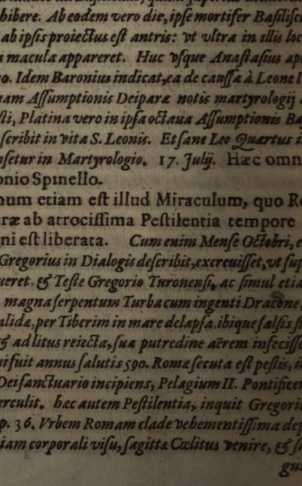 hibere. Ab eodem vero die, ipse mortifer Basilisc
ab ipsis proiectus est antris: vt vltra in illis loc
a macula appareret. Huc vsque Anastasius ap
o. Idem Baronius indicat, ea de caussa à Leone I
nam Assumptionis Deiparæ notis martyrologij
li, Platina vero in ipsa octaua Assumptionis Ba
scribit in vita S. Leonis. Et sane Leo Quartus i
osetur in Martyrologio. 17. Julij. Hæc omn
onio Spinello.
num etiam est illud Miraculum, quo R
aræ ab atrocissima Pestilentia tempore
gni est liberata. Cum enim Mense Octobri, e
Gregorius in Dialogis describit, excreuisset, vt sup
ueret. & Teste Gregorio Turonensi, ac simul etia
magna serpentum Turba cum ingenti Dracone,
alida, per Tiberim in mare delapsa. ibique salsis f
& ad litus reiecta, sua putredine aërem infeciss
uifuit annus salutis 590. Romæ secuta est pestis,
Dei sanctuario incipiens, Pelagium II. Pontificem
erculit. hæc autem Pestilentia, inquit Gregori
p. 36. Vrbem Romam clade vehementissima de
iam corporali visu, sagittæ Cœlitus venire, & s
gu